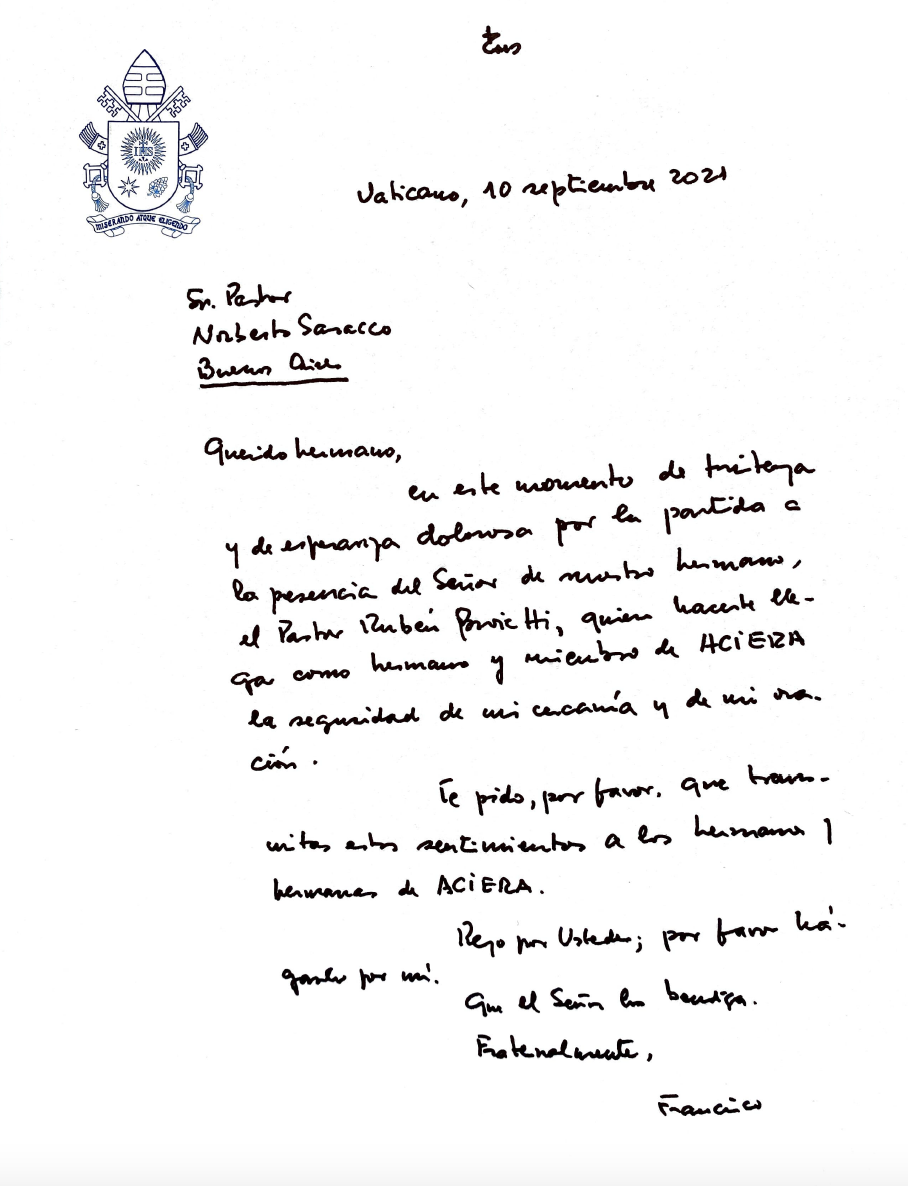 MISERANDO ATQUE ELIGENDO
Vaticano, 10 septiembre 2021
Sr. Pastor
Norberto Saracco
Buenos Aires
Querido hermano,
en este momento de tristeza
y de esperanza dolorosa por la partida a
la presencia del Señor de nuestro hermano,
el Pastor Rubén Proietti, quiero hacerte lle-
gar como hermano y miembro de ACIERA
la seguridad de mi cercanía y de mi ora-
ción.
Te pido, por favor, que trans-
mitas estos sentimientos a los hermanos y
hermanas de ACIERA.
Rezo por Ustedes; por favor há-
ganlo por mí.
Que el Señor los bendiga.
Fraternalmente,
Francisco